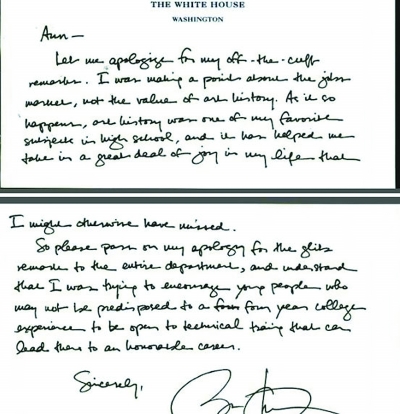 THE WHITE HOUSE
WASHINGTON
Ann —
Let me apologize for my off-the-cuff
remarks. I was making a point about the jobs
market, not the value of art history. As it so
happens, art history was one of my favorite
subjects in high school, and it has helped me
take in a great deal of joy in my life that
I might otherwise have missed.
So please pass on my apology for the glib
remark to the entire department, and understand
that I was trying to encourage young people who
may not be predisposed to a four four year college
experience to be open to technical training that can
lead them to an honorable career.
Sincerely,